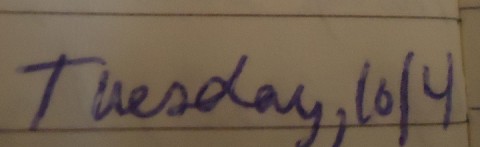 Tuesday, 10/4